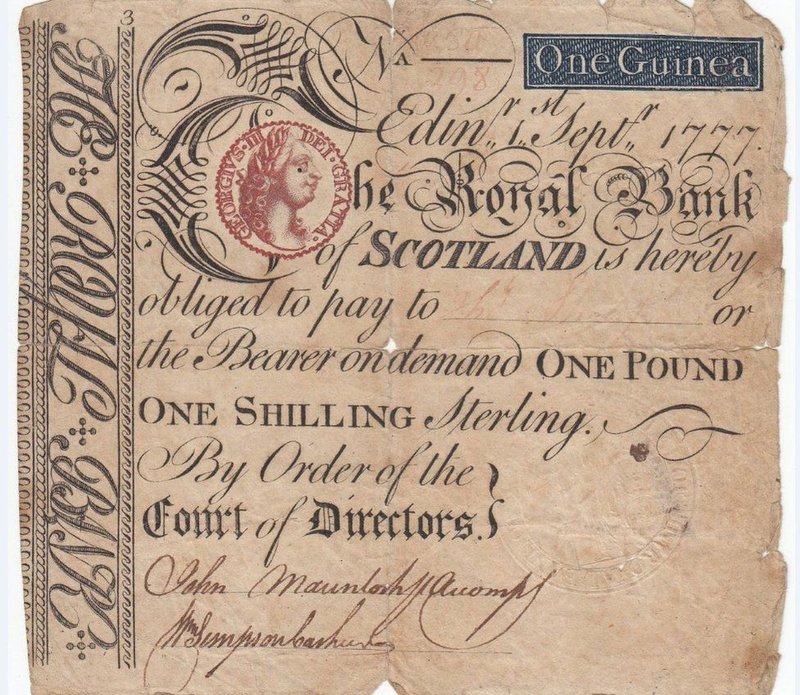 THE ROYAL BANK
3
No
A
298
One Guinea
Edinr. 1st Septr. 1777.
GEORGIVS·III·DEI·GRATIA·
The Royal Bank
of SCOTLAND is hereby
obliged to pay to or
the Bearer on demand ONE POUND
ONE SHILLING Sterling.
By Order of the
Court of Directors.
John Accompt
Wm Simpson Cashier